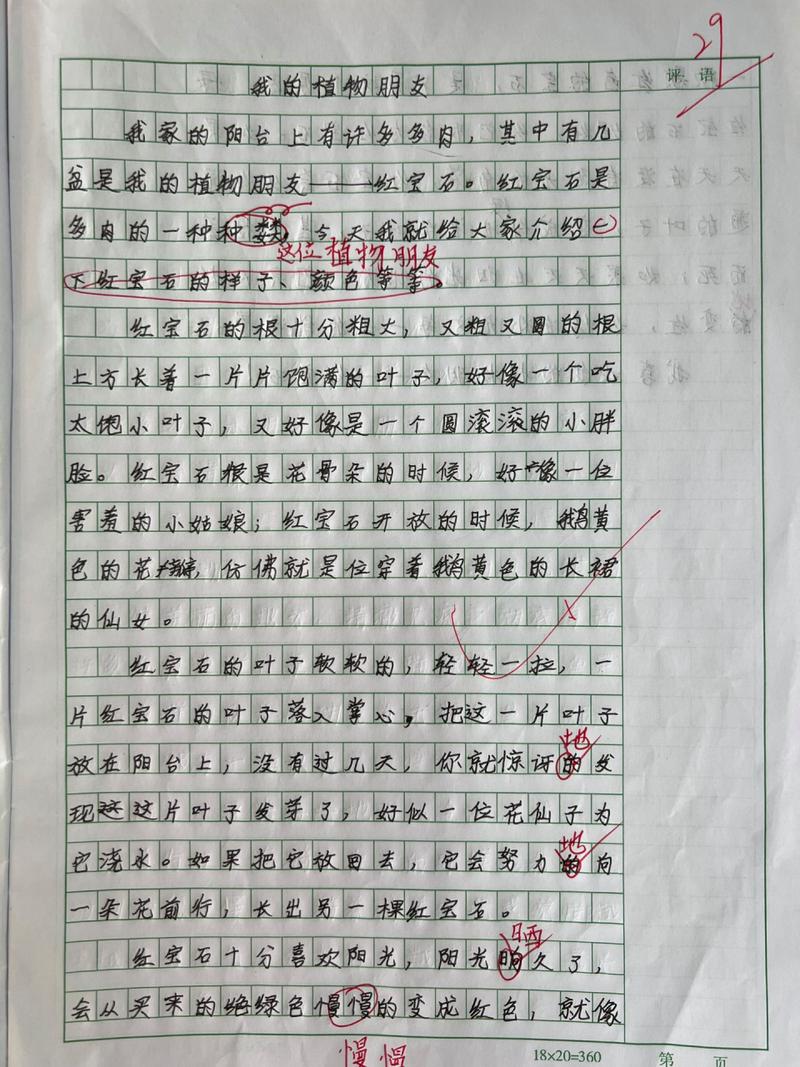 29
评语
我的植物朋友
我家的阳台上有许多多肉，其中有几
盆是我的植物朋友——红宝石。红宝石是
多肉的一种种类，今天我就给大家介绍一
这位植物朋友
下红宝石的样子、颜色等等。
红宝石的根十分粗大，又粗又圆的根
上方长着一片片饱满的叶子，好像一个吃
太饱小叶子，又好像是一个圆滚滚的小胖
脸。红宝石还是花骨朵的时候，好像一位
害羞的小姑娘；红宝石开放的时候，鹅黄
色的花瓣，仿佛就是位穿着鹅黄色的长裙
的仙女。
红宝石的叶子软软的，轻轻一拉，一
片红宝石的叶子落入掌心，把这一片叶子
地
放在阳台上，没有过几天，你就惊讶的发
现这这片叶子发芽了，好似一位花仙子为
地
它浇水。如果把它放回去，它会努力的向
一朵花前行，长出另一棵红宝石。
晒
红宝石十分喜欢阳光，阳光久了，
会从买来的绝绿色慢慢的变成红色，就像
慢慢
18×20=360 第 页